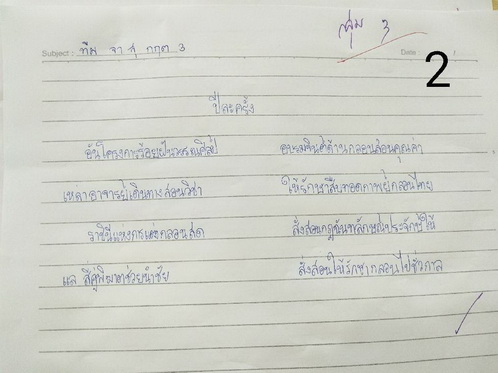 กลุ่ม 3
Subject: ทีม จา สุ กฤต 3 Date: /
2
ปีละครั้ง
อันโครงการร้อยฝันวรรณศิลป์ อบรมจินต์ด้านกลอนสอนคุณค่า
เหล่าอาจารย์ผู้เดินทางสอนวิชา ให้รักษาสืบทอดกาพย์กลอนไทย
ราชินีแห่งการแต่งกลอนสด สั่งสอนกฎฉันทลักษณ์ประจักษ์ให้
แล สี่คู่พิฆาตช่วยนำชัย สั่งสอนให้รักษากลอนไปชั่วกาล